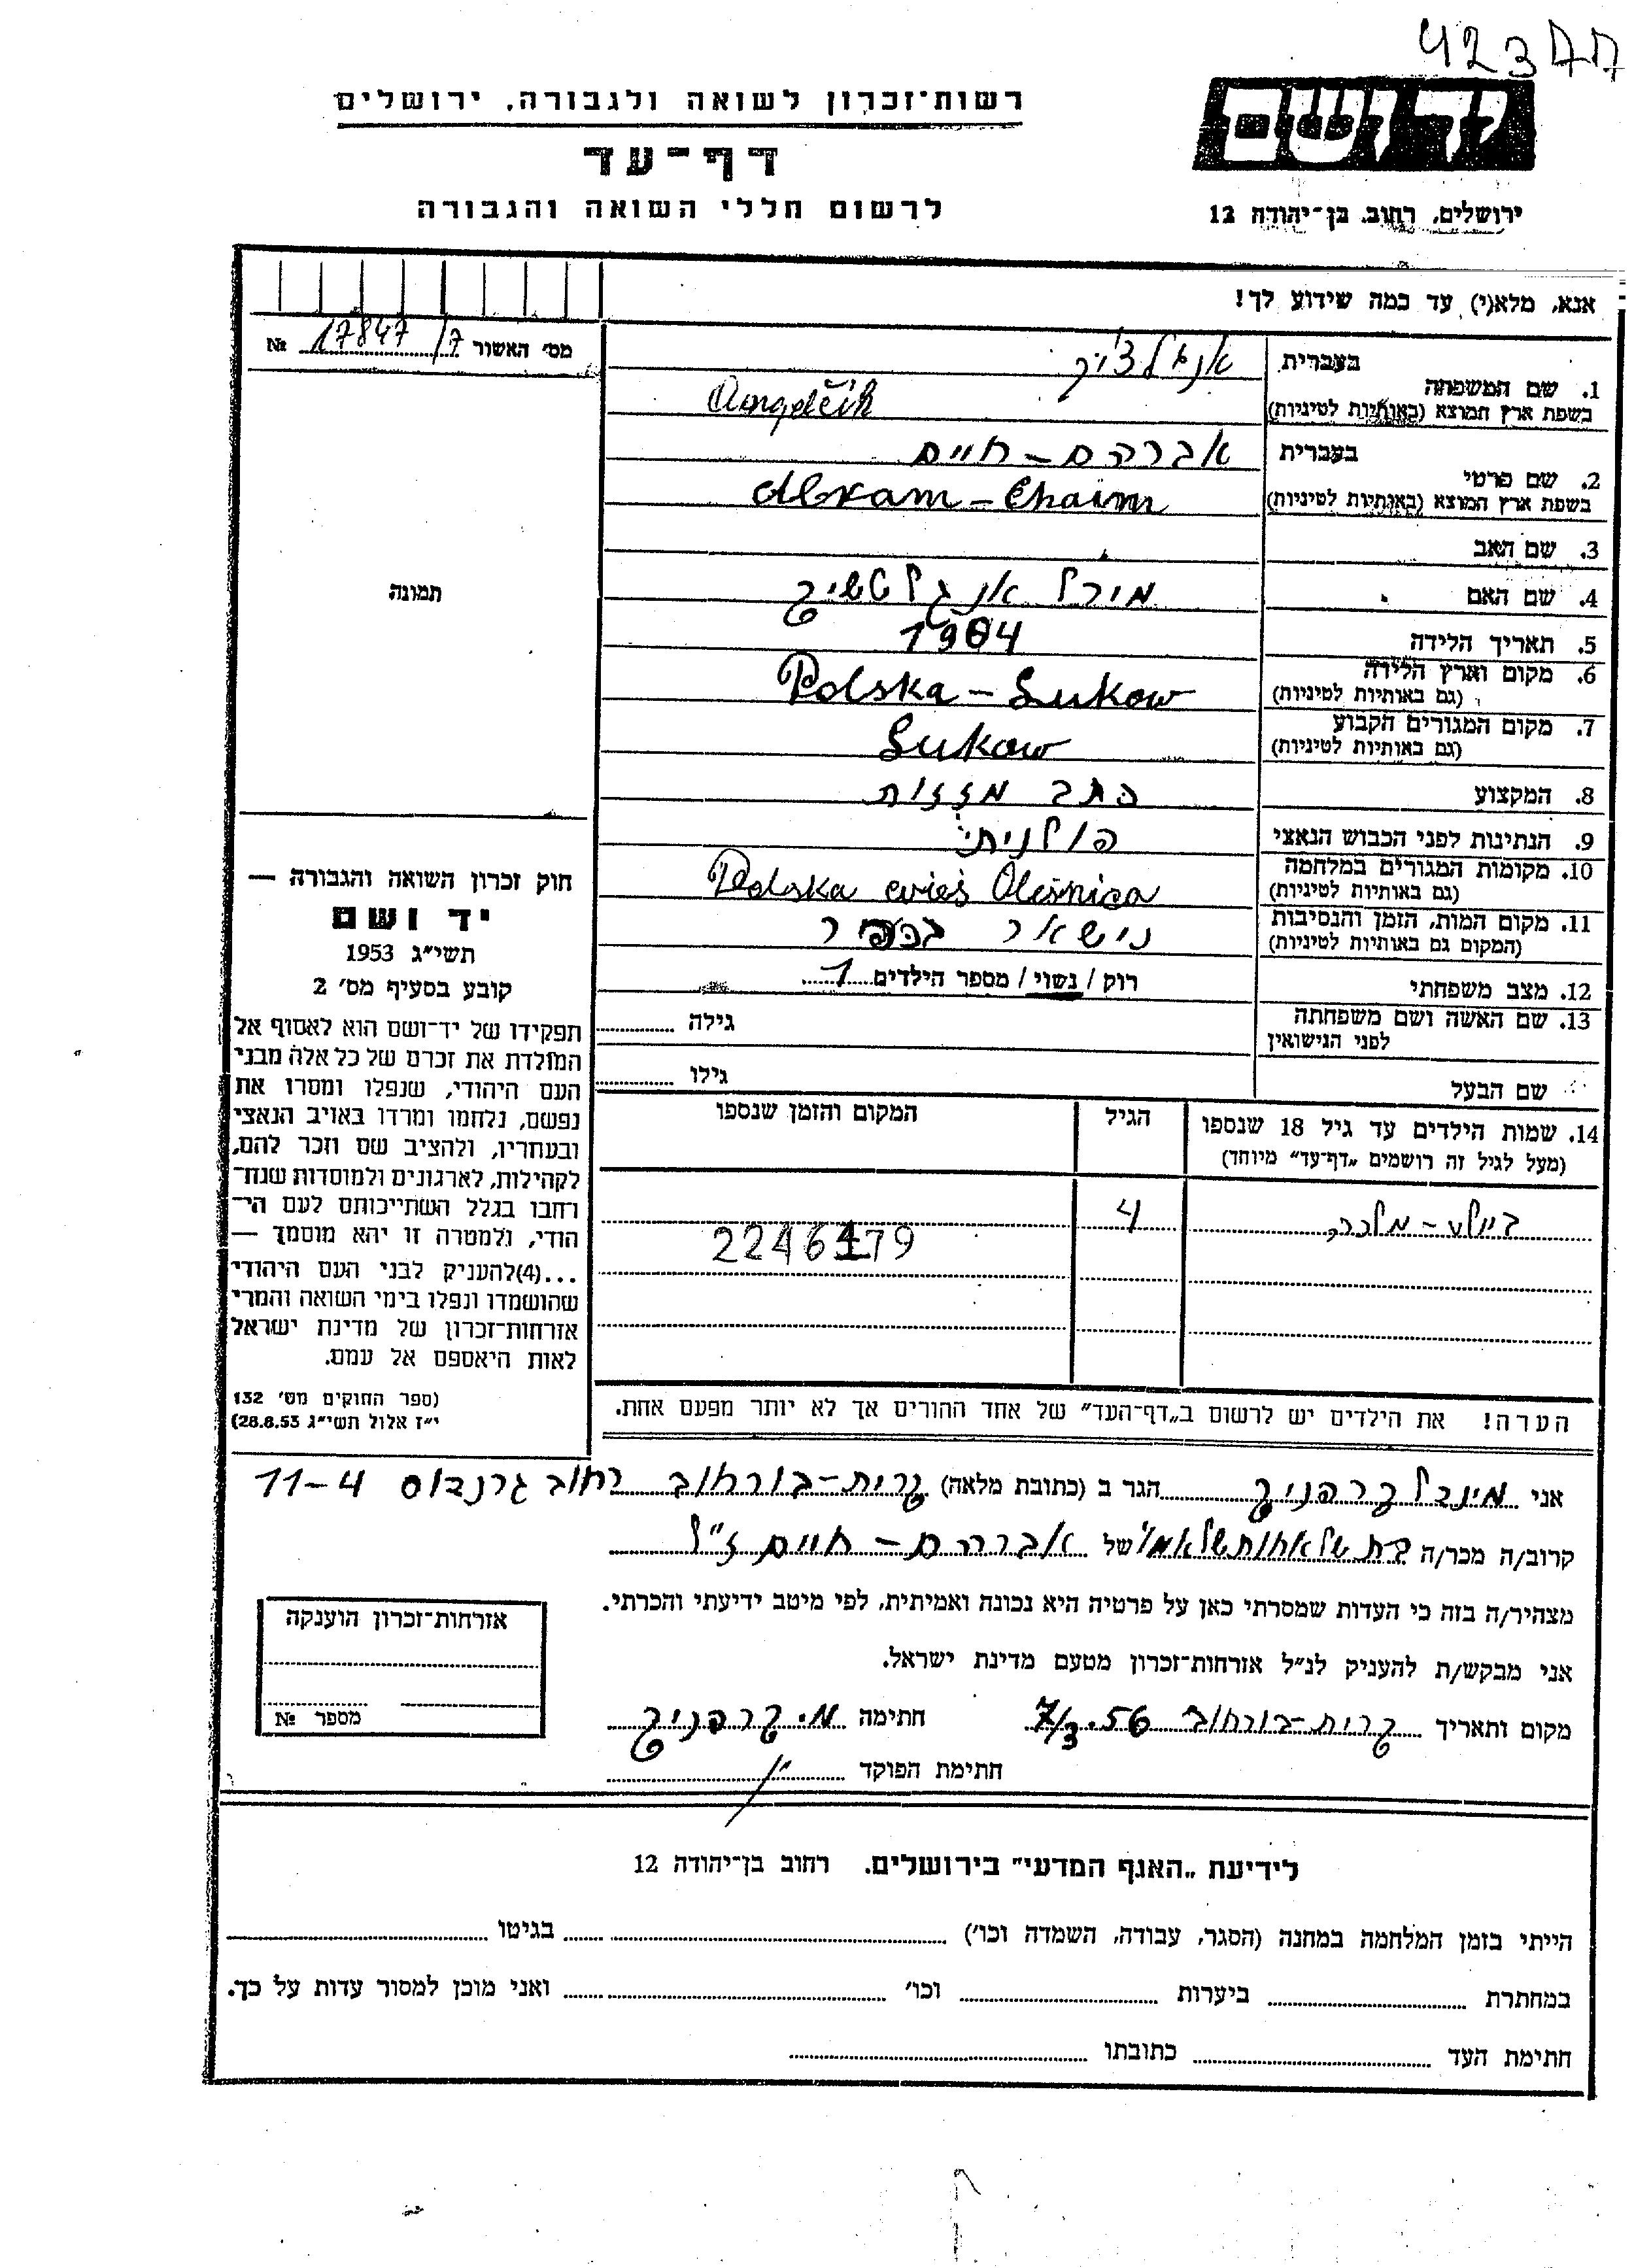 423דד
ידושם
ירושלים, רחוב בן־יהודה 12
רשות־זכרון לשואה ולגבורה, ירושלים
דף־עד
לרשום חללי השואה והגבורה
אנא, מלא(י) עד כמה שידוע לך!
מס׳ האשור 17847/7 №
תמונה
בעברית אנגלצ׳יק
1. שם המשפחה
בשפת ארץ המוצא (באותיות לטיניות) Angelčik
בעברית אברהם-חיים
2. שם פרטי
בשפת ארץ המוצא (באותיות לטיניות) Abram-Chaim
3. שם האב
4. שם האם מירל אנגלטשיק
5. תאריך הלידה 1904
6. מקום וארץ הלידה
(גם באותיות לטיניות) Polska-Lukow
7. מקום המגורים הקבוע
(גם באותיות לטיניות) Lukow
8. המקצוע כתב מזזות
9. הנתינות לפני הכבוש הנאצי פולניתי
10. מקומות המגורים במלחמה
(גם באותיות לטיניות) Polska wieś Oleśnica
11. מקום המות, הזמן והנסיבות
(המקום גם באותיות לטיניות) נישאר בכפר
12. מצב משפחתי רוק / נשוי / מספר הילדים 1
13. שם האשה ושם משפחתה
לפני הנישואין גילה
שם הבעל גילו
14. שמות הילדים עד גיל 18 שנספו
(מעל לגיל זה רושמים „דף־עד” מיוחד)
הגיל
המקום והזמן שנספו
ביילע-מלכה 4
2246179
הערה! את הילדים יש לרשום ב„דף־העד” של אחד ההורים אך לא יותר מפעם אחת.
חוק זכרון השואה והגבורה —
יד ושם
תשי״ג 1953
קובע בסעיף מס׳ 2
תפקידו של יד־ושם הוא לאסוף אל
המולדת את זכרם של כל אלה מבני
העם היהודי, שנפלו ומסרו את
נפשם, נלחמו ומרדו באויב הנאצי
ובעוזריו, ולהציב שם וזכר להם,
לקהילות, לארגונים ולמוסדות שנח־
רחבו בגלל השתייכותם לעם הי־
הודי, ולמטרה זו יהא מוסמך —
...(4)להעניק לבני העם היהודי
שהושמדו ונפלו בימי השואה והמרי
אזרחות־זכרון של מדינת ישראל
לאות היאספם אל עמם.
(ספר החוקים מס׳ 132
י״ז אלול תשי״ג 28.8.53)
אני מינדל קרפניק הגר ב (כתובת מלאה) קרית-בורחוב רחוב גרנדוס 11-4
קרוב/ה מכר/ה בת של אחות של אמו של אברהם-חיים ז״ל
מצהיר/ה בזה כי העדות שמסרתי כאן על פרטיה היא נכונה ואמיתית, לפי מיטב ידיעתי והכרתי.
אני מבקש/ת להעניק לנ״ל אזרחות־זכרון מטעם מדינת ישראל.
מקום ותאריך קרית-בורחוב 7/3.56 חתימה מ. קרפניק
חתימת הפוקד
אזרחות־זכרון הוענקה
מספר №
לידיעת „האגף המדעי” בירושלים. רחוב בן־יהודה 12
הייתי בזמן המלחמה במחנה (הסגר, עבודה, השמדה וכו׳) בגיטו
במחתרת ביערות וכו׳ ואני מוכן למסור עדות על כך.
חתימת העד כתובתו